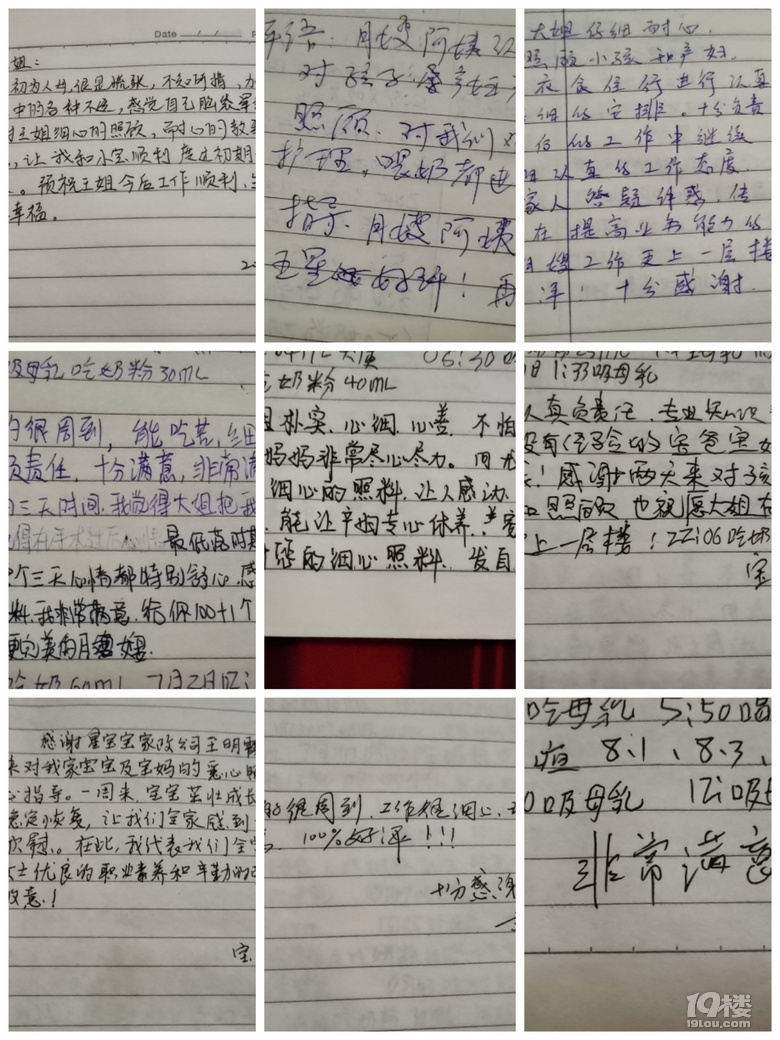 Date
姐：
初为人母，很是慌张，不知所措，
中的各种不适，感觉自己脸发
王姐细心的照顾，耐心的教
，让我和小宝顺利度过初期
。预祝王姐今后工作顺利，
幸福。
评语：月嫂阿姨
对孩子
照顾．对我们
护理，喂奶都
指导．月嫂阿姨
五星 好评！再
大姐仔细耐心．
照顾小孩和产妇．
衣食住行进行认真
细的安排．十分负责
后的工作中继续
认真的工作态度．
家人答疑解惑．
在提高业务能力的
月嫂工作更上一层楼
评！十分感谢．
吸母乳 吃奶粉30ML
的很周到，能吃苦，细
负责任，十分满意，非常满
三天时间．我觉得大姐把我
最低落时期
个三天心情都特别舒心．感
料．我非常满意．给你100+1个
更完美的月嫂
吃奶60ML 7月2日
06:30
吃奶粉40ML
朴实．心细．心善．不怕
妈妈非常尽心尽力。
细心的照料．让人感动．
能让产妇专心休养．
的细心照料．发自
1:33吸母乳
认真负责任．专业知识
没有经验的宝爸宝妈
！感谢 两天来对孩
照顾 也祝愿大姐
上一层楼！22:06吃奶
宝
感谢星宝宝家政公司王明
来对我家宝宝及宝妈的悉心照
心指导。一周来，宝宝茁壮成长
稳定恢复，让我们全家感到
欣慰。在此，我代表我们全
女士优良的职业素养和辛勤的
致意！
宝
的很周到．工作很细心．
100%好评！！！
十分感谢
吃母乳 5:50喝
疸 8.1、8.3、
吸母乳 12:
非常满意
19楼
19lou.com